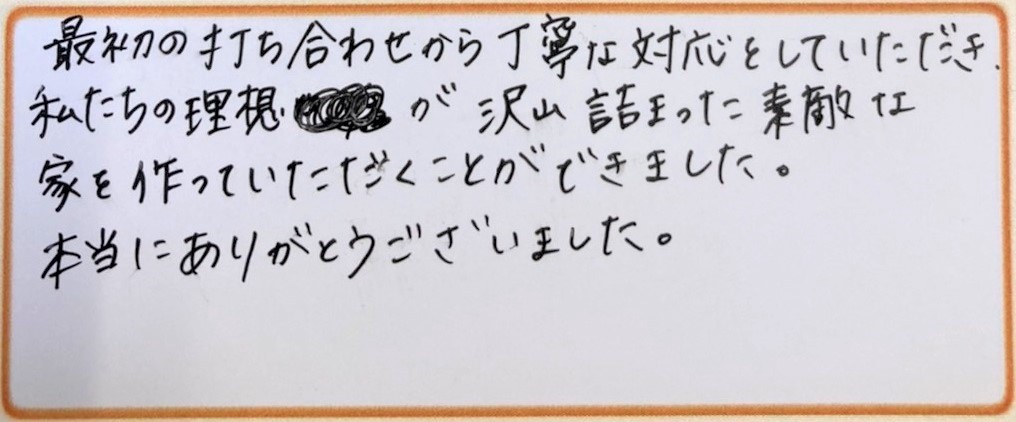 最初の打ち合わせから丁寧な対応をしていただき、
私たちの理想が沢山詰まった素敵な
家を作っていただくことができました。
本当にありがとうございました。